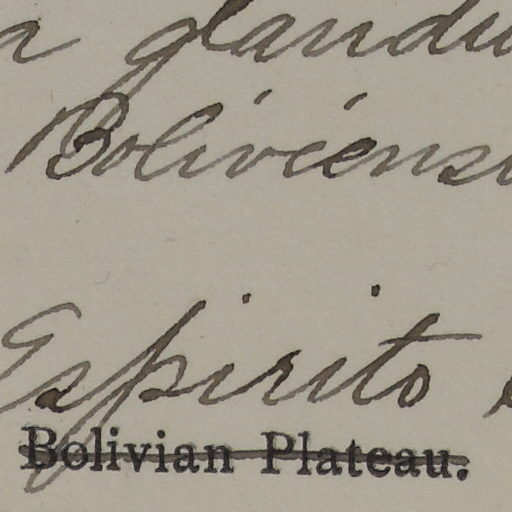 a glandu
Boliviensi
Espirito
Bolivian Plateau.